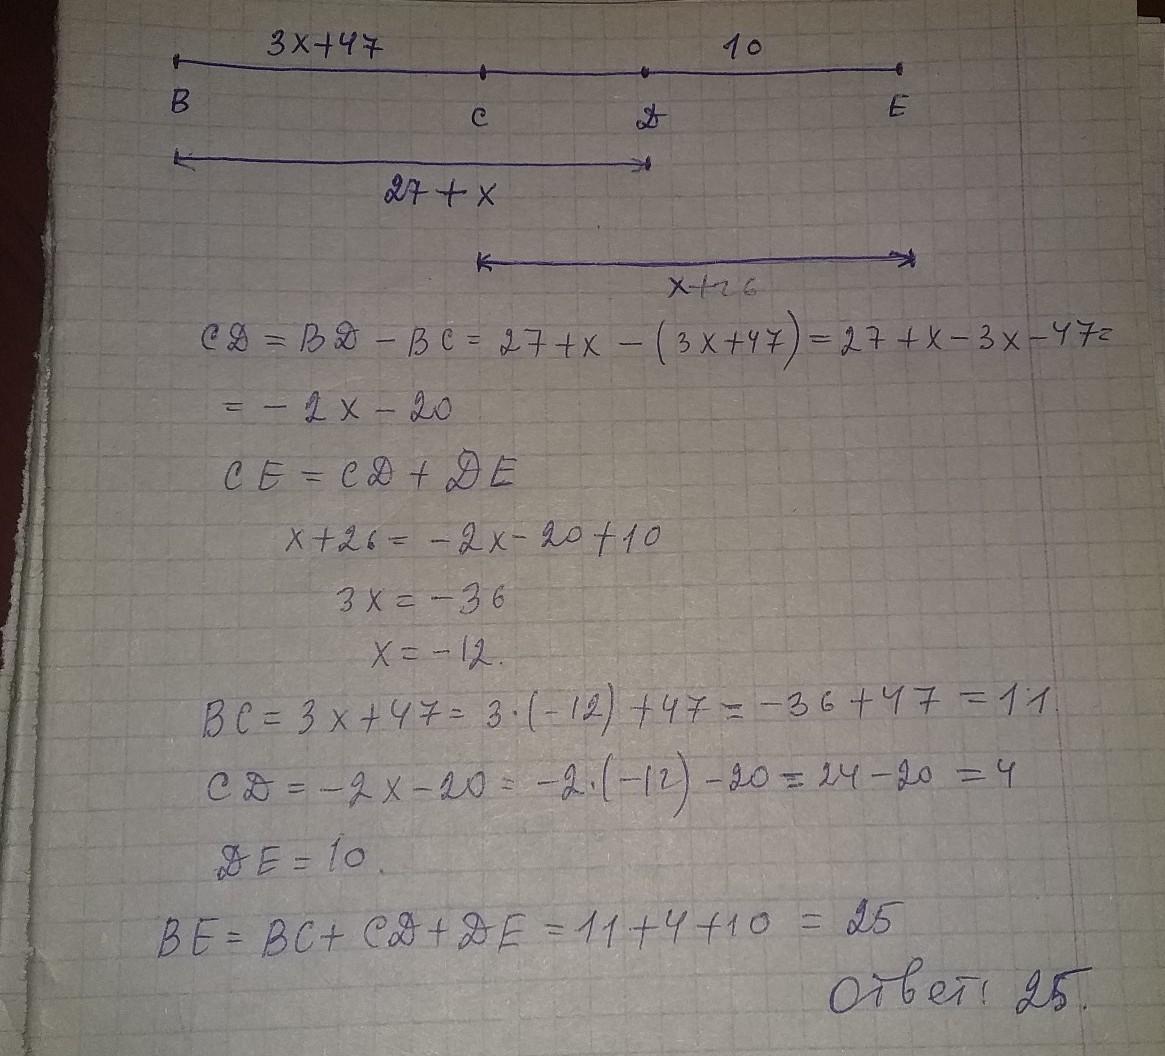 3x+47 10
B C D E
27+x
x+26
CD = BD - BC = 27+x - (3x+47) = 27+x-3x-47=
= -2x-20
CE = CD + DE
x+26 = -2x-20+10
3x = -36
x = -12.
BC = 3x+47 = 3·(-12) +47 = -36+47 = 11.
CD = -2x-20 = -2·(-12) -20 = 24-20 = 4
DE = 10.
BE = BC + CD + DE = 11+4+10 = 25
Ответ: 25.